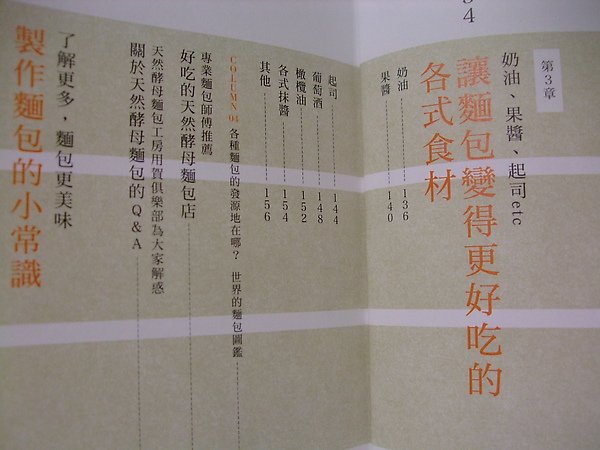 54
第3章
奶油、果醬、起司etc
讓麵包變得更好吃的
各式食材
奶油 136
果醬 140
起司 144
葡萄酒 148
橄欖油 152
各式抹醬 154
其他 156
COLUMN 04 各種麵包的發源地在哪？ 世界的麵包圖鑑
專業麵包師傅推薦
好吃的天然酵母麵包店
天然酵母麵包工房用賀俱樂部為大家解惑
關於天然酵母麵包的Q&A
了解更多，麵包更美味
製作麵包的小常識